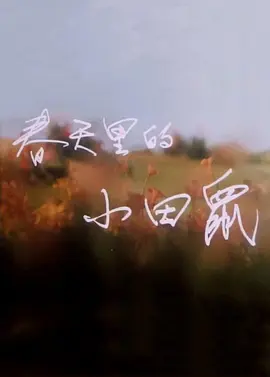 春天里的
小田鼠